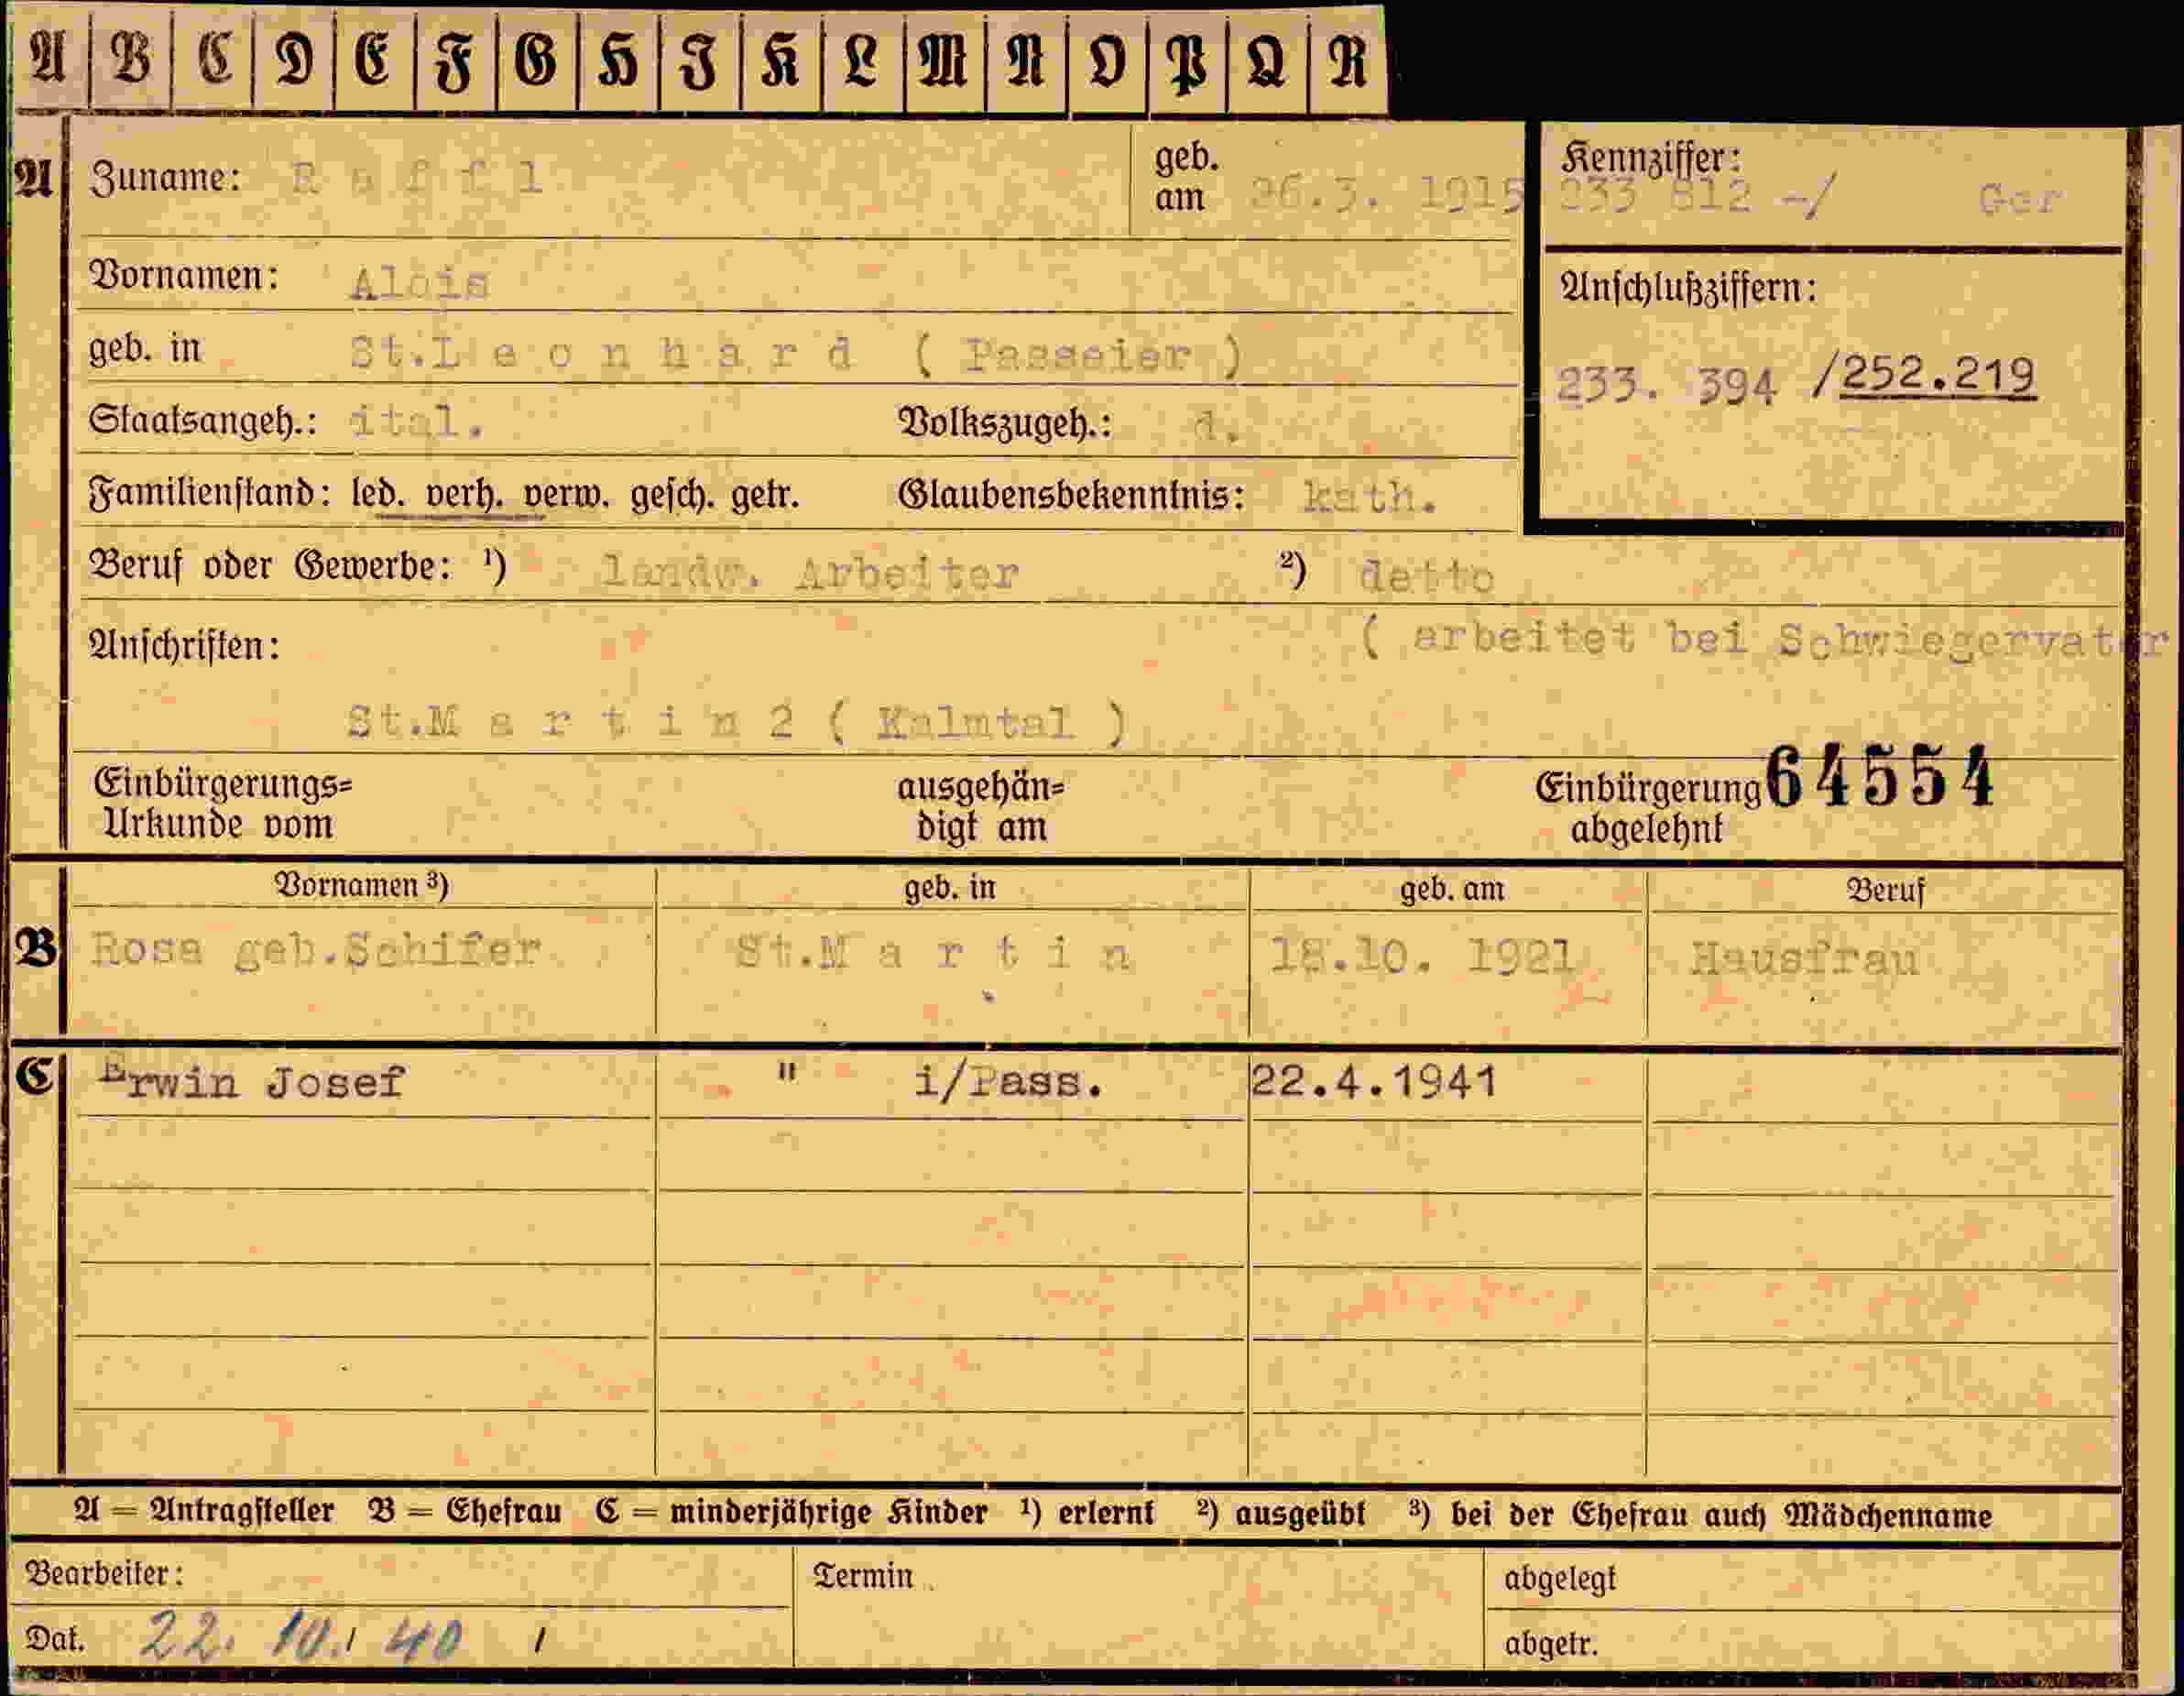 A B C D E F G H I K L M N O P Q R
A Zuname: Raffl geb. am 26.3. 1915 Kennziffer: 233 812 -/ Ger
Vornamen: Alois
Anschlußziffern:
geb. in St.Leonhard ( Passeier )
233. 394 /252.219
Staatsangeh.: ital. Volkszugeh.: d.
Familienstand: led. verh. verw. gesch. getr. Glaubensbekenntnis: kath.
Beruf oder Gewerbe: ¹) landw. Arbeiter ²) detto
Anschriften: ( arbeitet bei Schwiegervater
St.Martin 2 ( Kalmtal )
Einbürgerungs= ausgehän= Einbürgerung 64554
Urkunde vom digt am abgelehnt
Vornamen ³) geb. in geb. am Beruf
B Rosa geb.Schifer St.Martin 18.10. 1921 Hausfrau
C Erwin Josef " i/Pass. 22.4.1941
A = Antragsteller B = Ehefrau C = minderjährige Kinder ¹) erlernt ²) ausgeübt ³) bei der Ehefrau auch Mädchenname
Bearbeiter: Termin abgelegt
Dat. 22. 10. 40 abgetr.